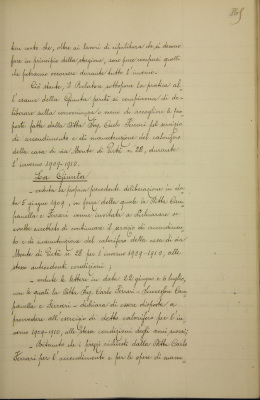 365
tien conto che, oltre ai lavori di ripulitura che si devono
fare in principio della stagione, sono pure compresi quelli
che potranno occorrere durante tutto l'inverno.
Ciò stante, il Relatore sottopone la pratica al
l'esame della Giunta perché si compiaccia di de
liberare sulla convenienza o meno di accogliere le pro
poste fatte dalla Ditta Ing. Carlo Ferrari pel servizio
di accendimento e di manutenzione del calorifero
della casa di via Monte di Pietà n. 28, durante
l'inverno 1909-1910.
La Giunta
- veduta la propria precedente deliberazione in da
ta 5 giugno 1909, in forza della quale la Ditta Cam
panella e Ferrari venne invitata a dichiarare se
avrebbe accettato di continuare il servizio di accendimen
to e di manutenzione del calorifero della casa di via
Monte di Pietà n. 28 per l'inverno 1909-1910, alle
stesse antecedenti condizioni;
- vedute le lettere in data 22 giugno e 6 luglio,
con le quali la Ditta Ing. Carlo Ferrari - Successore Cam
panella e Ferrari - dichiara di essere disposta a
provvedere all'esercizio di detto calorifero per l'in
verno 1909-1910, alle stesse condizioni degli anni scorsi;
- Ritenuto che i prezzi richiesti dalla Ditta Carlo
Ferrari per l'accendimento e per le opere di manu